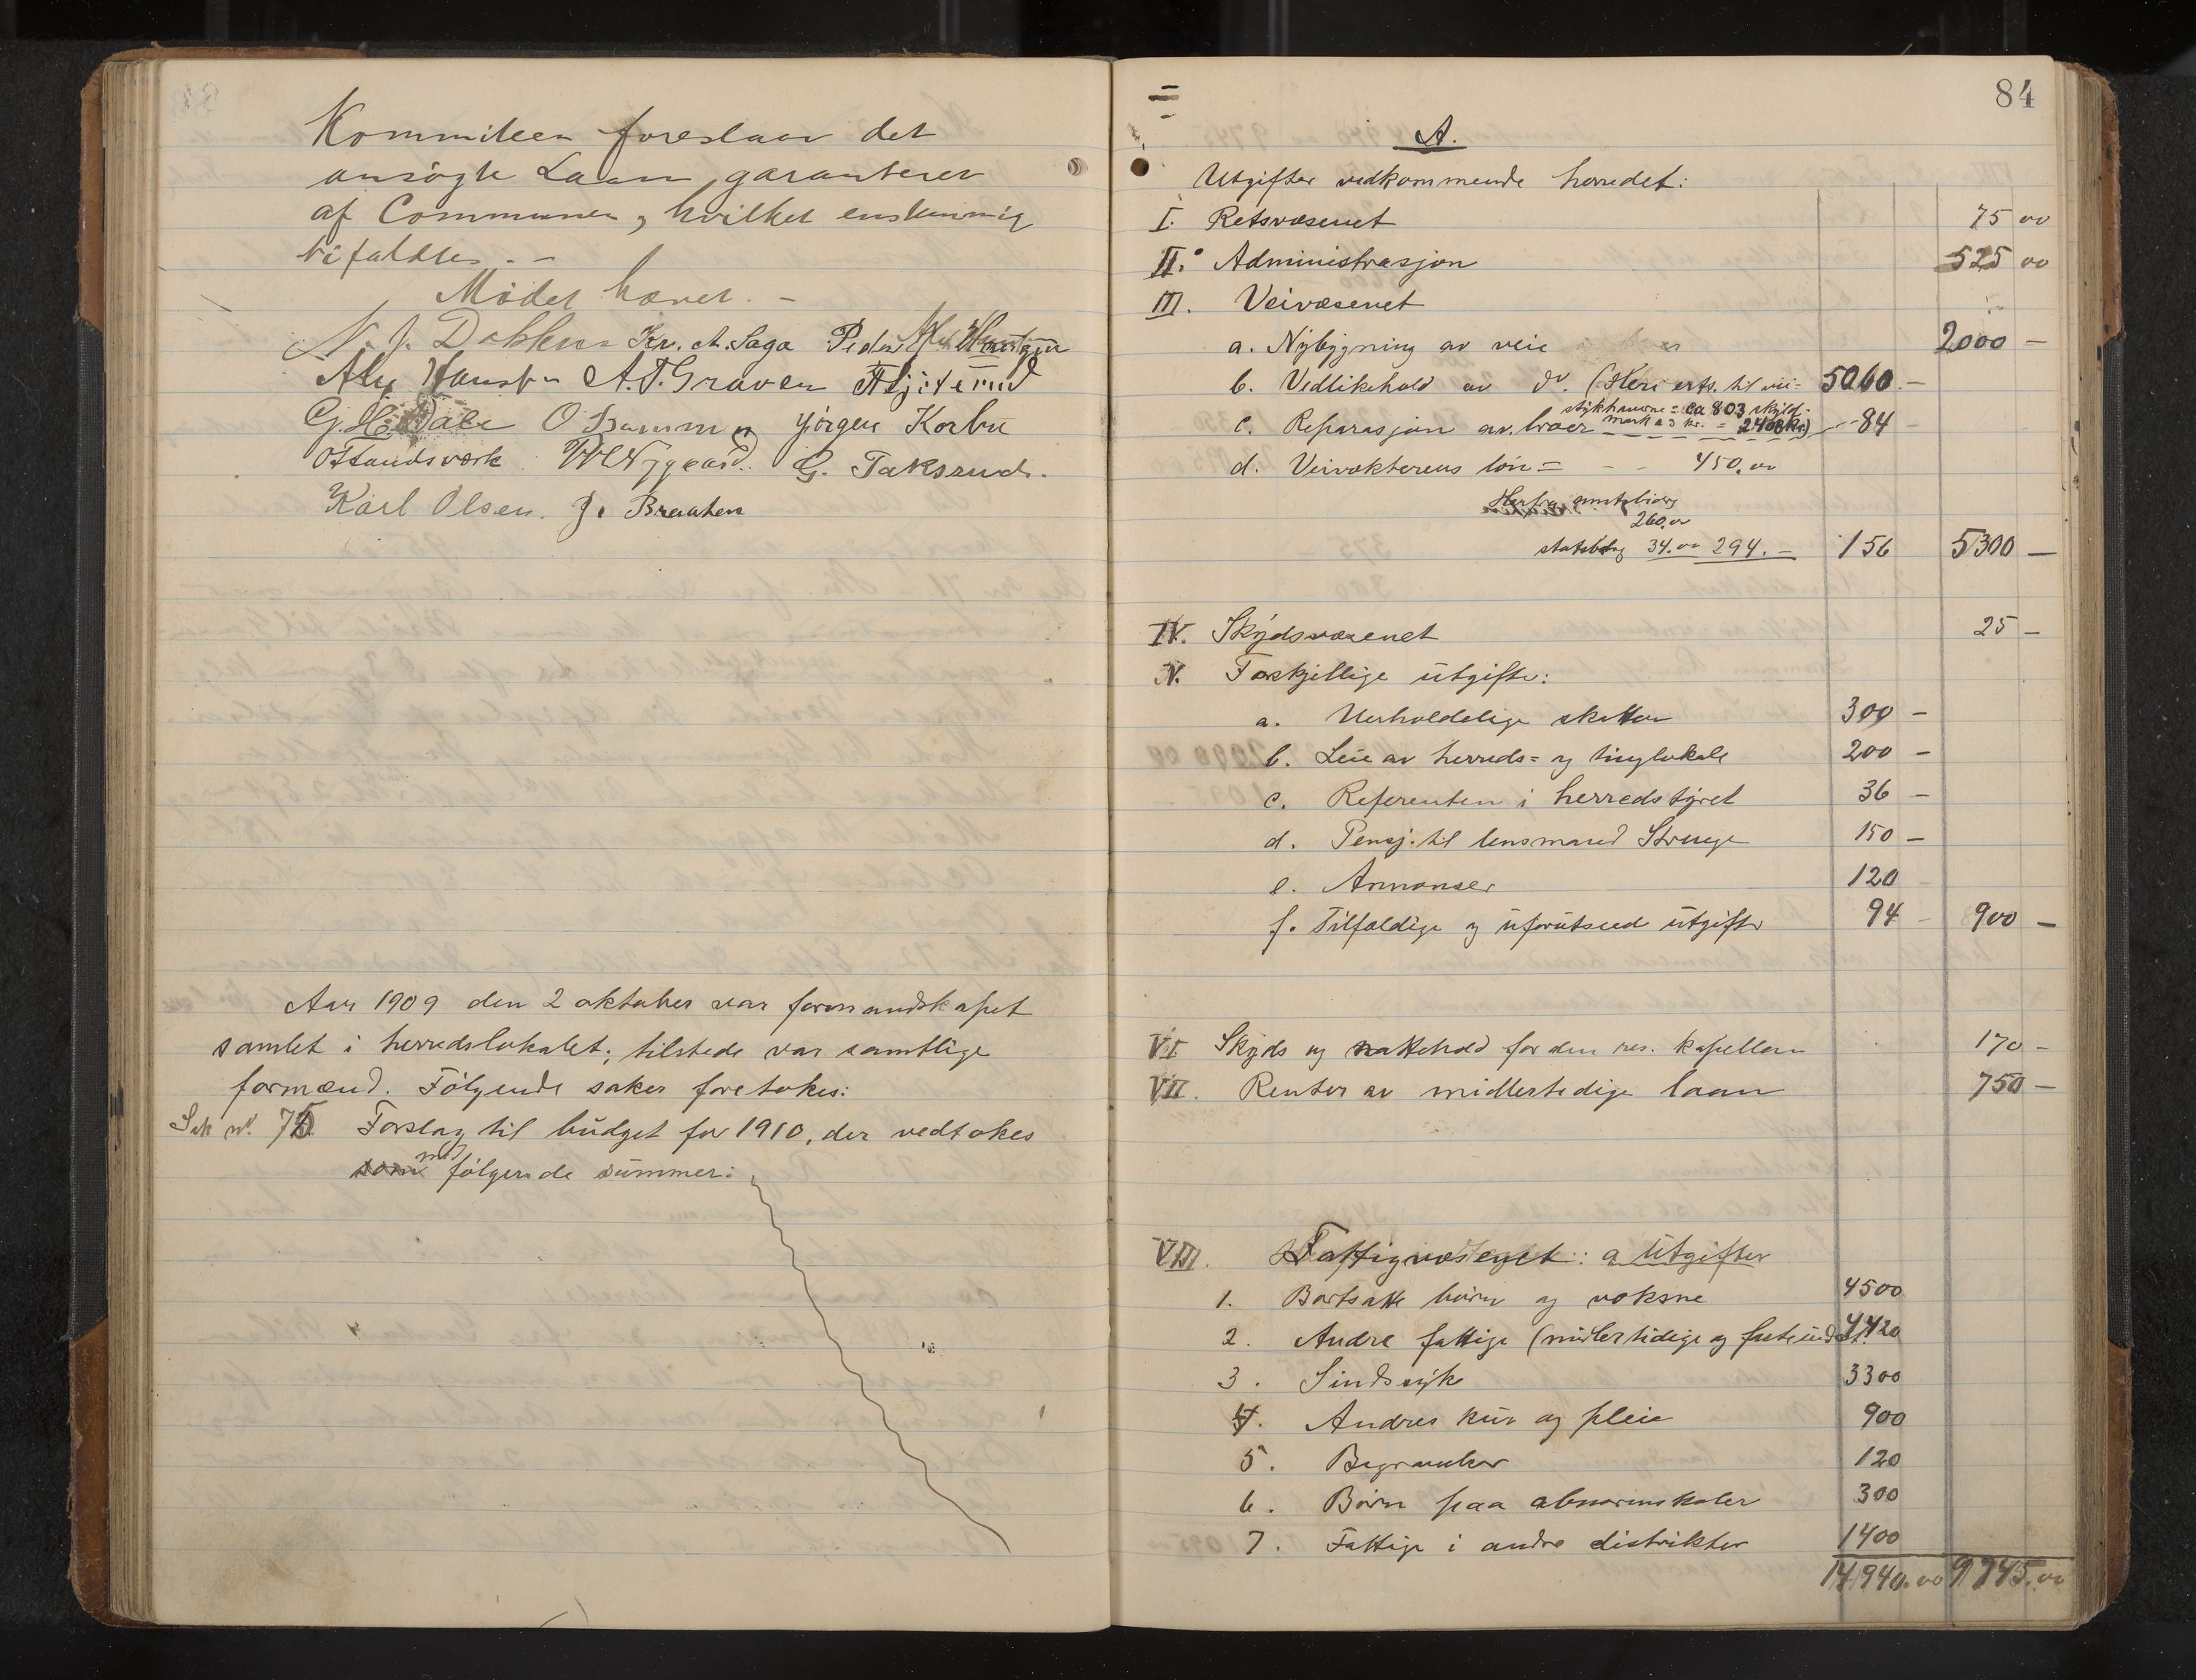 Kommiteen foreslaar det
ansögte Laan garanteret
af Communen, hvilket enstemmig
bifaldtes. -
Mödet hævet. -
N. J. Dokken Kr. A. Saga Peder
A. T. Graven
G. H. Dale O Jørgen Korbu
O Landsværk G. Taksrud.
Karl Olsen. J. Braaten
Aar 1909 den 2 oktober var formandskapet
samlet i herredslokalet; tilstede var samtlige
formænd. Følgende saker foretokes:
Sak nº. 75 Forslag til budget for 1910, der vedtokes
med følgende summer:
84
A.
Utgifter vedkommende herredet:
I. Retsvæsenet 75 00
II. Administrasjon 525 00
III. Veivæsenet
a. Nybygning av veie 2000 -
b. Vedlikehold av dº. (Heri erts. til vei= 5060 -
stykhaverne = ca 803 skyld-
c. Reparasjon av broer mark a 3 kr. = 2408 kr.) 84
d. Veivokterens løn = - - 450.00
Herfra amtsbidrag
260.00
statsbidrag 34.00 294. - 156 5300 -
IV. Skydsvæsenet 25 -
V. Forskjellige utgifter:
a. Uerholdelige skatter 300 -
b. Leie av herreds= og tinglokale 200 -
c. Referenten i herredstyret 36 -
d. Pensj. til lensmand Struge 150 -
e. Annonser 120
f. Tilfældige og uforutseed utgifter 94 - 900 -
VI Skyds og nattehold for den res. kapellan 170 -
VII. Renter av midlertidige laan 750 -
VIII. Fattigvæsenet: a Utgifter
1. Bortsatte børn og voksne 4500
2. Andre fattige (midlertidige og 4420
3. Sindssyke 3300
4. Andres kur og pleie 900
5. Begravelser 120
6. Børn paa abnormskoler 300
7. Fattige i andre distrikter 1400
14940.00 9745.00